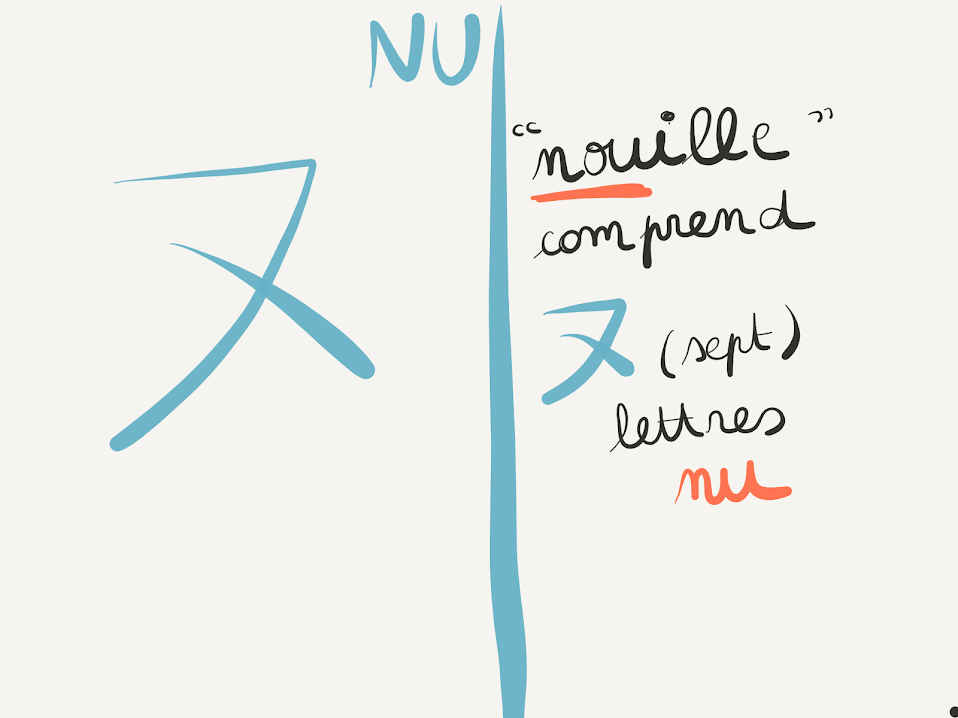 NU
ヌ
“nouille”
comprend
ヌ (sept)
lettres
nu